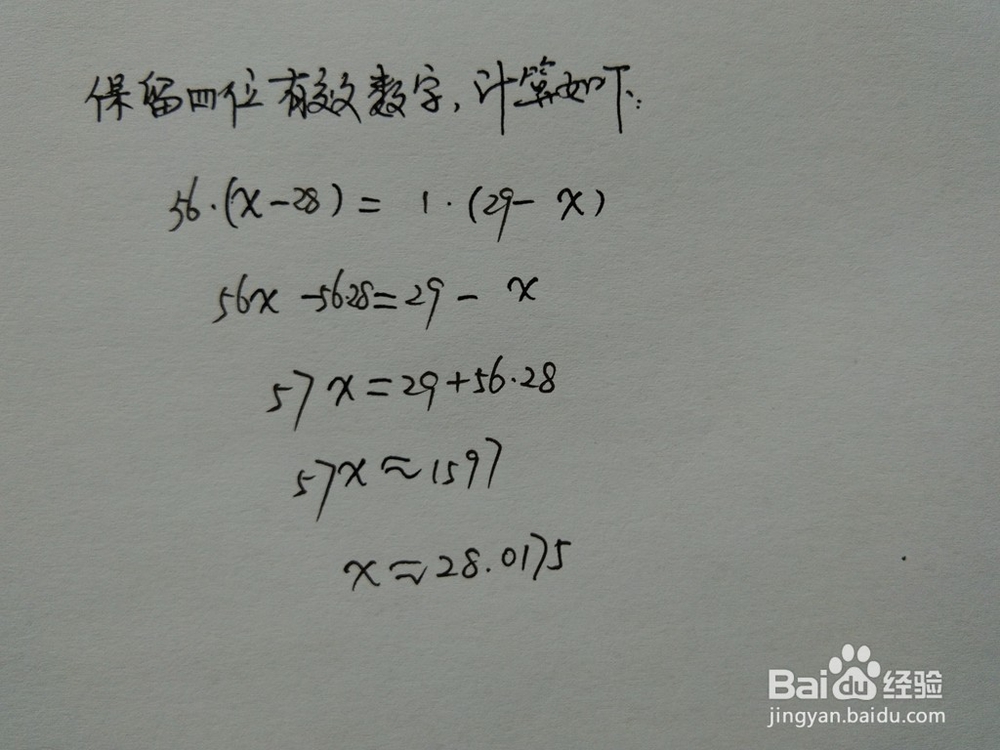 保留四位有效数字,计算如下:
56·(x-28)= 1·(29- x)
56x -56·28=29- x
57x=29+56·28
57x≈1597
x≈28.0175
Baidu经验
jingyan.baidu.com